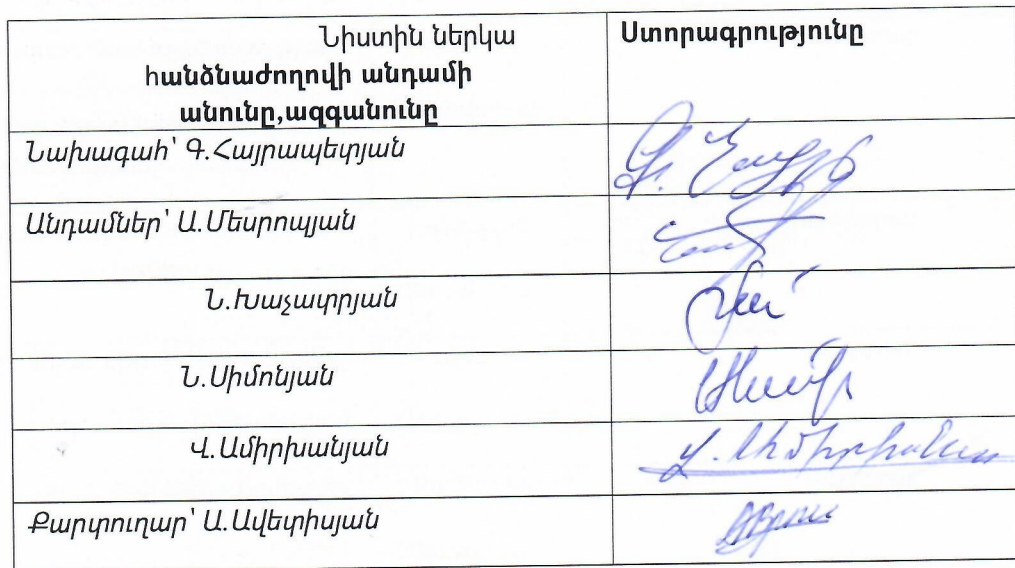 Նիստին ներկա
հանձնաժողովի անդամի
անունը,ազգանունը
Ստորագրությունը
Նախագահ՝ Գ.Հայրապետյան
Անդամներ՝ Ա.Մեսրոպյան
Ն.Խաչատրյան
Ն.Սիմոնյան
Վ.Ամիրխանյան
Քարտուղար՝ Ա.Ավետիսյան